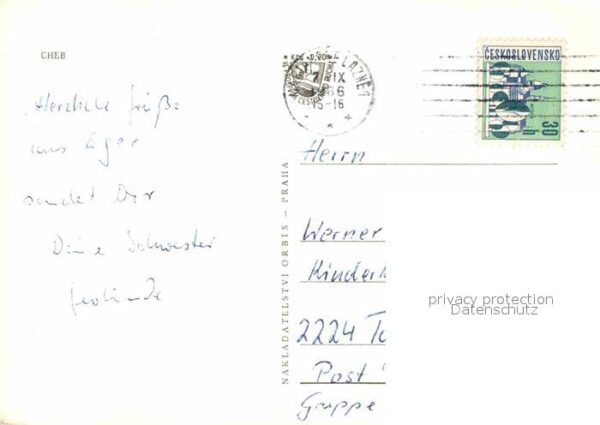 CHEB
Herzliche Grüße
aus Eger
sendet Dir
Deine Schwester
NAKLADATELSTVÍ ORBIS – PRAHA
LÁZNĚ 1
IX
15-16
ČESKOSLOVENSKO
30
h
Herrn
Werner
Kinder
2224
Post
Gruppe
privacy protection
Datenschutz